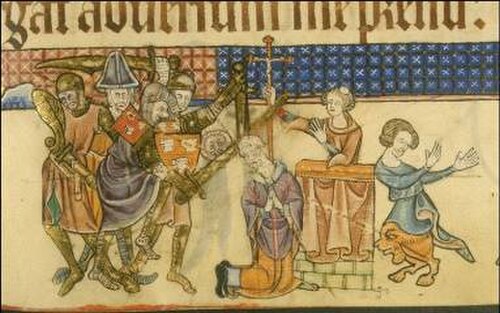 gat aduersum me preliu.